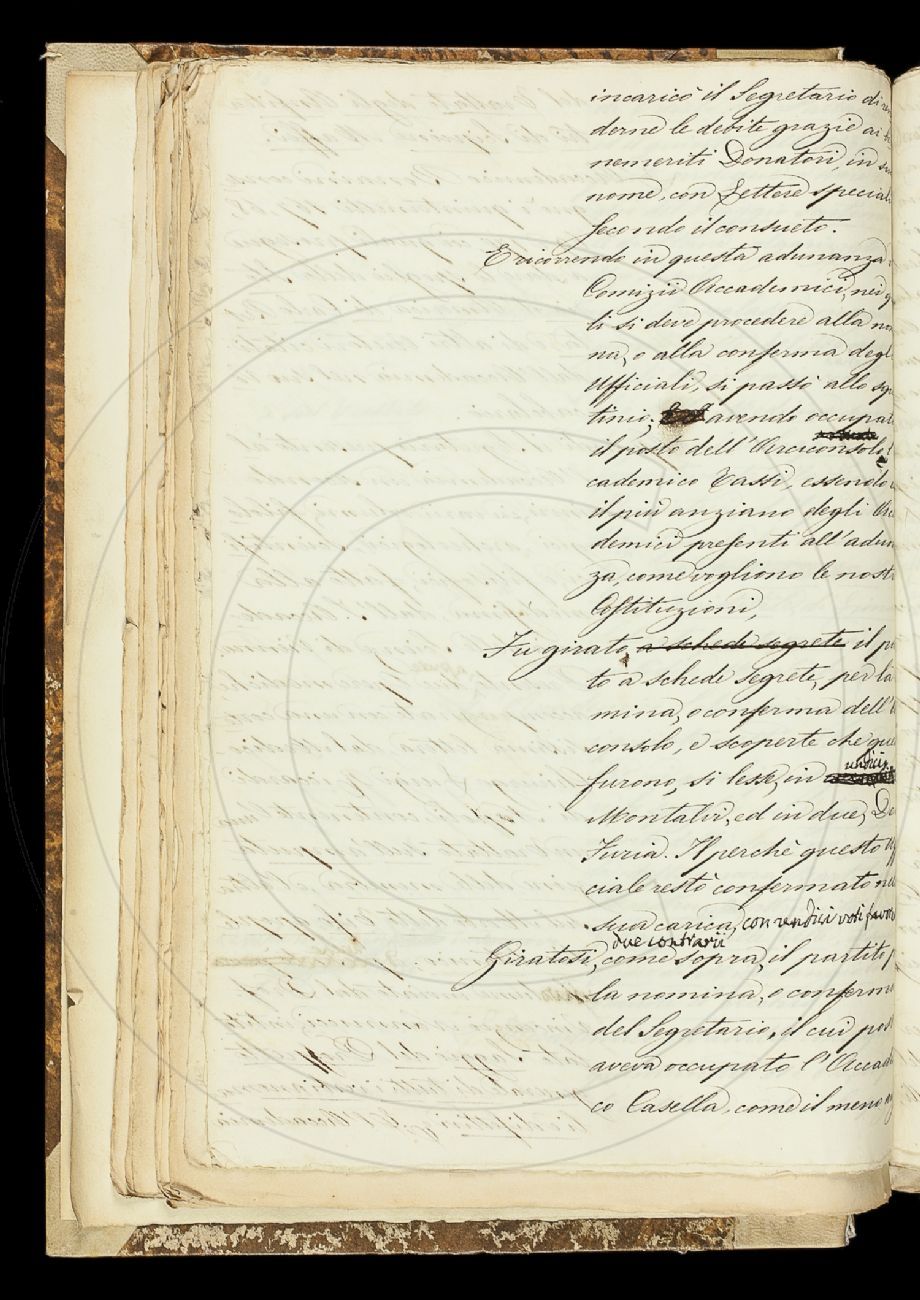 incaricò il Segretario di
derne le debite grazie ai
nemeriti Donatori, in
nome, con Lettere special
secondo il consueto.
E ricorrendo in questa adunanza
Comizii Accademici, nei
li si deve procedere alla no
na, o alla conferma degl
Ufficiali, si passò allo sq
tinio; avendo occupat
il posto dell'Arciconsolo l
cademico Tassi, essendo
il più anziano degli Ac
demici presenti all'adun
za, come vogliono le nostr
Costituzioni,
Fu girato a schede segrete il p
to a schede segrete, per la
mina, o conferma dell'
consolo, e scoperte che que
undici
furono, si lesse, in
Montalvi, ed in due, De
Furia. Il perchè questo
ciale restò confermato ne
sua carica, con undici voti favor
due contrarii
Giratosi, come sopra, il partito p
la nomina, o conferm
del Segretario, il cui pos
aveva occupato l'Accad
co Casella, come il meno